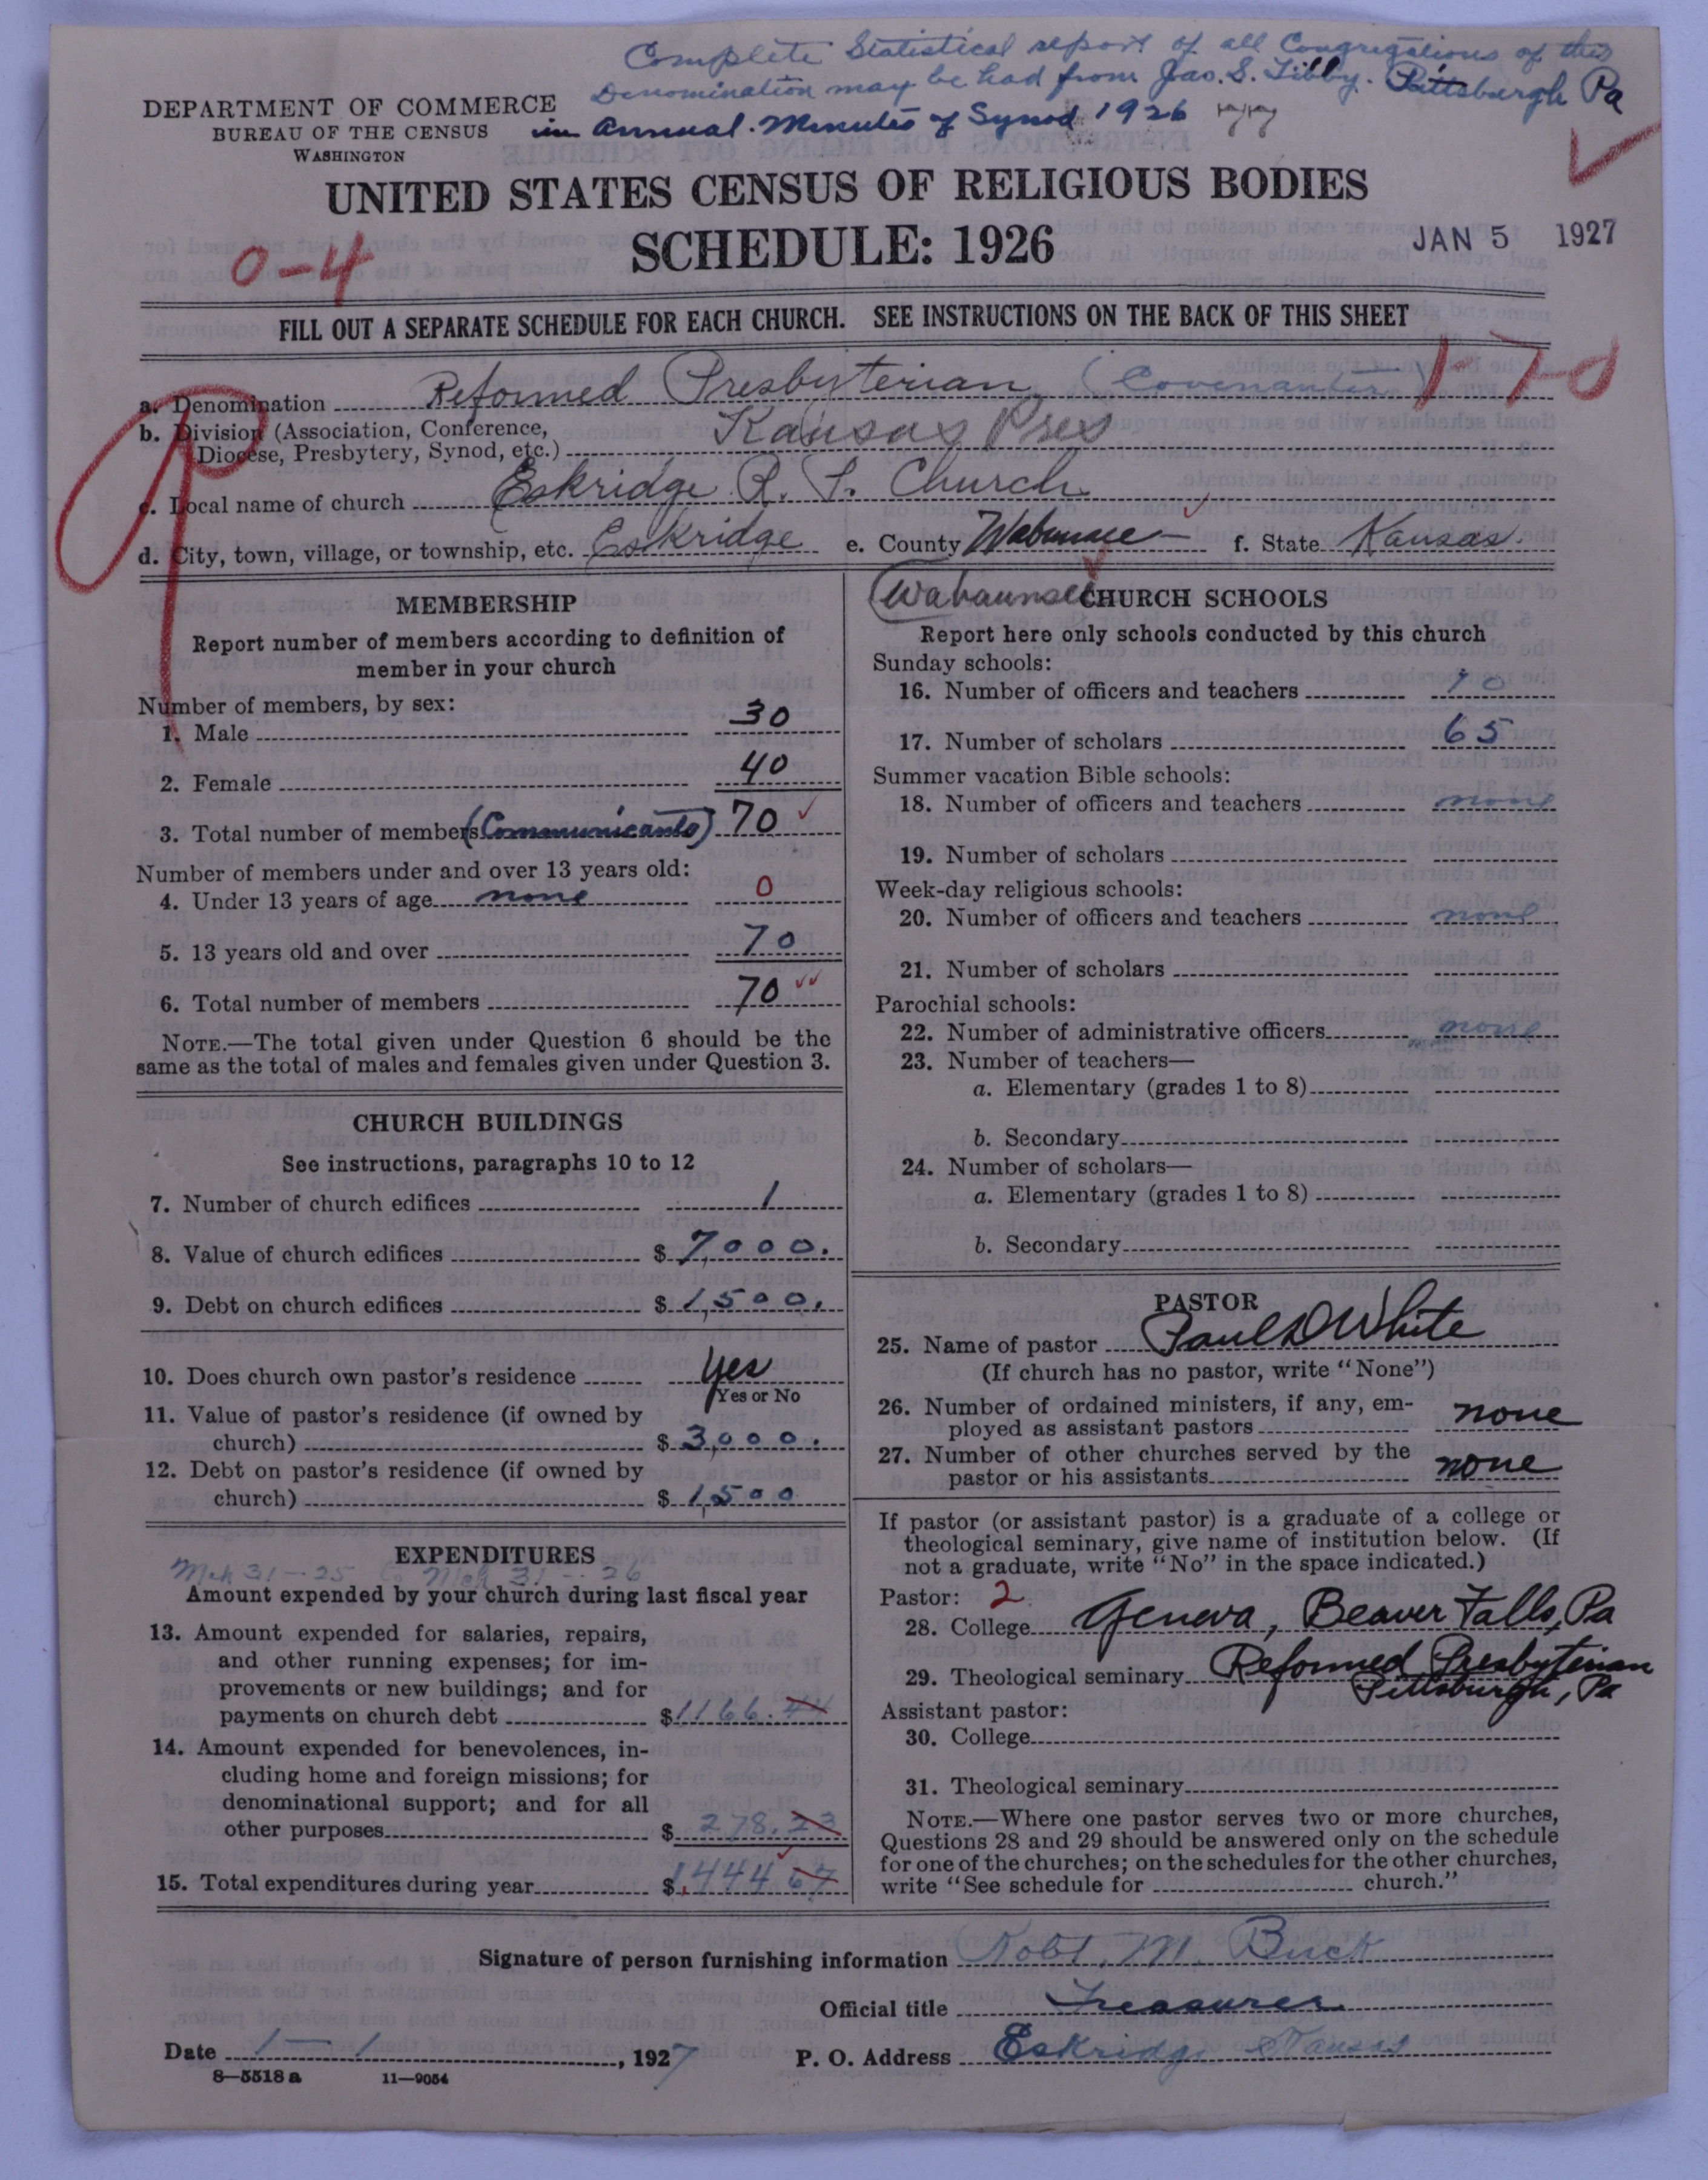 Complete Statistical report of all Congregations of this
Denomination may be had from Jas. S. Tibby. Pittsburgh Pa
in Annual Minutes of Synod 1926
DEPARTMENT OF COMMERCE
BUREAU OF THE CENSUS
WASHINGTON
UNITED STATES CENSUS OF RELIGIOUS BODIES
SCHEDULE: 1926
JAN 5 1927
0-4
FILL OUT A SEPARATE SCHEDULE FOR EACH CHURCH. SEE INSTRUCTIONS ON THE BACK OF THIS SHEET
1-70
a. Denomination Reformed Presbyterian (Covenanter)
b. Division (Association, Conference, Diocese, Presbytery, Synod, etc.) Kansas Pres
c. Local name of church Eskridge R. P. Church
d. City, town, village, or township, etc. Eskridge e. County Wabunsee f. State Kansas
(Wabaunsee
MEMBERSHIP
Report number of members according to definition of
member in your church
Number of members, by sex:
1. Male 30
2. Female 40
3. Total number of members (Communicants) 70
Number of members under and over 13 years old:
4. Under 13 years of age none 0
5. 13 years old and over 70
6. Total number of members 70
NOTE.—The total given under Question 6 should be the
same as the total of males and females given under Question 3.
CHURCH BUILDINGS
See instructions, paragraphs 10 to 12
7. Number of church edifices 1
8. Value of church edifices $ 7,000.
9. Debt on church edifices $ 1,500.
10. Does church own pastor's residence Yes
Yes or No
11. Value of pastor's residence (if owned by
church) $ 3,000.
12. Debt on pastor's residence (if owned by
church) $ 1,500
EXPENDITURES
Mch 31-25 to Mch 31-26
Amount expended by your church during last fiscal year
13. Amount expended for salaries, repairs,
and other running expenses; for im-
provements or new buildings; and for
payments on church debt $1166.44
14. Amount expended for benevolences, in-
cluding home and foreign missions; for
denominational support; and for all
other purposes $ 278.23
15. Total expenditures during year $1,444 67
CHURCH SCHOOLS
Report here only schools conducted by this church
Sunday schools:
16. Number of officers and teachers 10
17. Number of scholars 65
Summer vacation Bible schools:
18. Number of officers and teachers none
19. Number of scholars
Week-day religious schools:
20. Number of officers and teachers none
21. Number of scholars
Parochial schools:
22. Number of administrative officers none
23. Number of teachers—
a. Elementary (grades 1 to 8)
b. Secondary
24. Number of scholars—
a. Elementary (grades 1 to 8)
b. Secondary
PASTOR
25. Name of pastor Paul D White
(If church has no pastor, write "None")
26. Number of ordained ministers, if any, em-
ployed as assistant pastors none
27. Number of other churches served by the
pastor or his assistants none
If pastor (or assistant pastor) is a graduate of a college or
theological seminary, give name of institution below. (If
not a graduate, write "No" in the space indicated.)
Pastor: 2
28. College Geneva, Beaver Falls, Pa
29. Theological seminary Reformed Presbyterian
Pittsburgh, Pa
Assistant pastor:
30. College
31. Theological seminary
NOTE.—Where one pastor serves two or more churches,
Questions 28 and 29 should be answered only on the schedule
for one of the churches; on the schedules for the other churches,
write "See schedule for church."
Signature of person furnishing information Robt. M. Buck
Official title Treasurer
Date 1-1, 1927 P. O. Address Eskridge Kansas
8—5518 a 11—9054